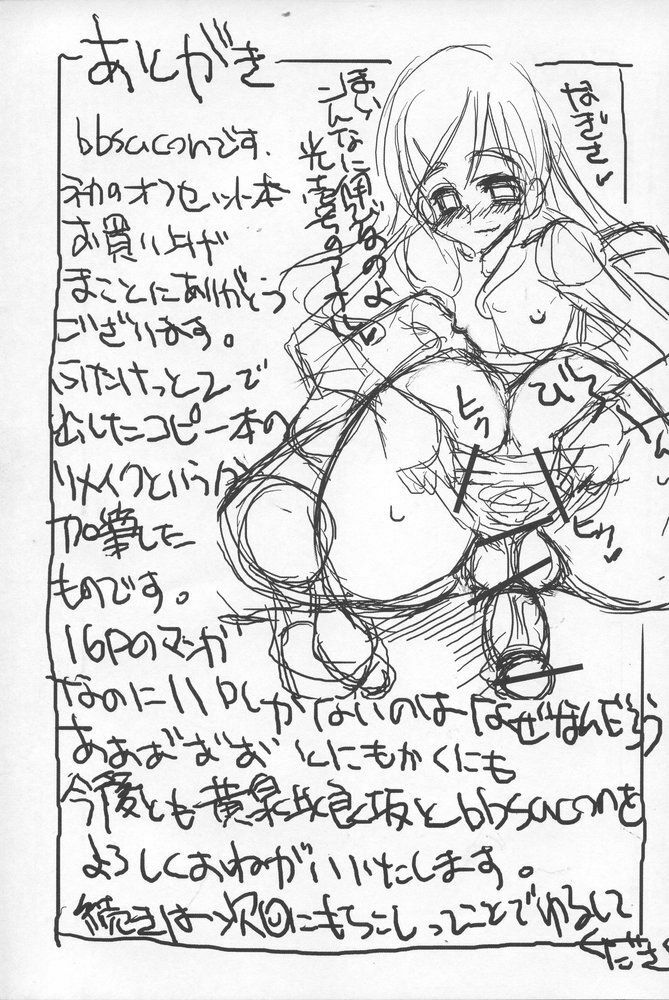 あとがき
bbsaconです、
初のオフセット本
お買い上げ
まことにありがとう
ございます。
ふたけっと2で
出したコピー本の
リメイクというか
加筆した
ものです。
16Pのマンガ
なのに11Pしかないのはなぜなんだろう
ああおおおとにもかくにも
今後とも黄泉比良坂とbbsaconを
よろしくおねがいいたします。
続きは次回にもちこしってことでゆるして
くださ